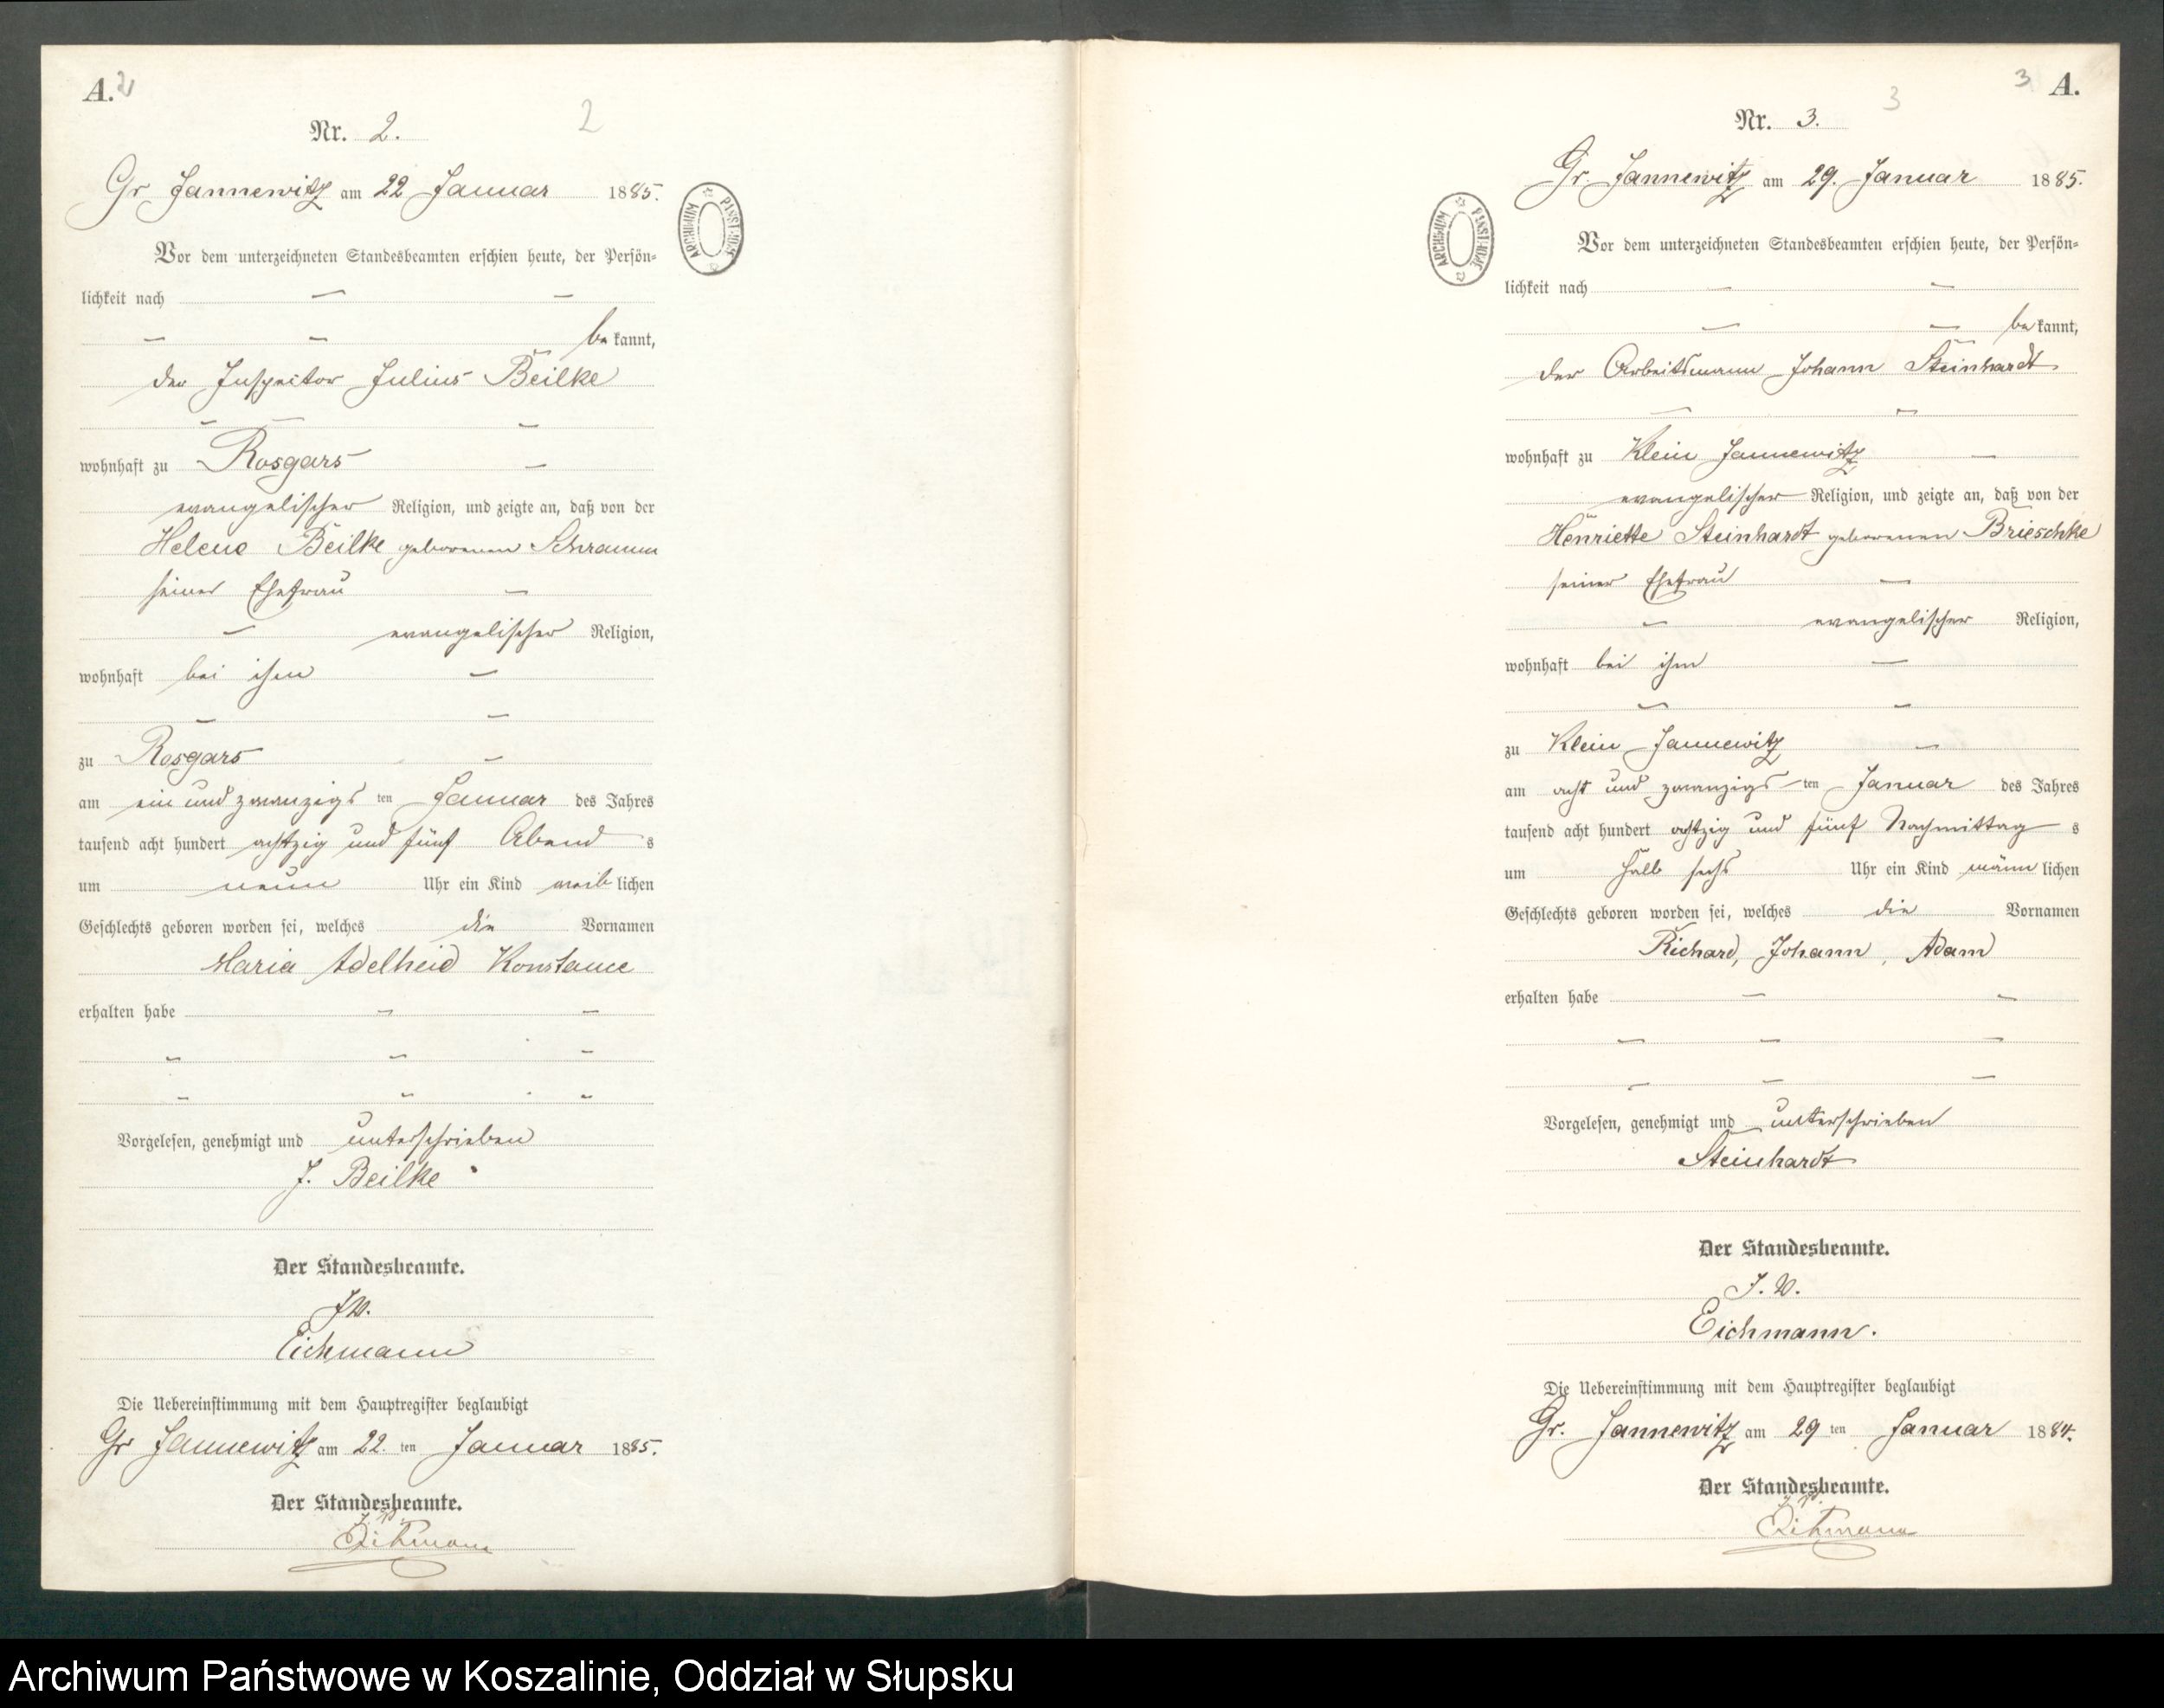 A. 2
Nr. 2.
2
Gr Jannewitz am 22 Januar 1885.
ARCHIWUM PAŃSTWOWE
Vor dem unterzeichneten Standesbeamten erschien heute, der Persön-
lichkeit nach — —
— — be kannt,
der Inspector Julius Beilke
— —
wohnhaft zu Rosgars —
evangelischer Religion, und zeigte an, daß von der
Helene Beilke geborenen Schramm
seiner Ehefrau —
— evangelischer Religion,
wohnhaft bei ihm —
— —
zu Rosgars —
am ein und zwanzigs ten Januar des Jahres
tausend acht hundert achtzig und fünf Abend s
um neun Uhr ein Kind weib lichen
Geschlechts geboren worden sei, welches die Vornamen
Maria Adelheid Konstance
erhalten habe — —
— — —
— — —
Vorgelesen, genehmigt und unterschrieben
J. Beilke
Der Standesbeamte.
J.V.
Eichmann
Die Uebereinstimmung mit dem Hauptregister beglaubigt
Gr Jannewitz am 22. ten Januar 1885.
Der Standesbeamte.
J.V.
Eichmann
3 A.
Nr. 3.
3
Gr. Jannewitz am 29. Januar 1885.
ARCHIWUM PAŃSTWOWE
Vor dem unterzeichneten Standesbeamten erschien heute, der Persön-
lichkeit nach — —
— — be kannt,
der Arbeitsmann Johann Steinhardt
— —
wohnhaft zu Klein Jannewitz —
evangelischer Religion, und zeigte an, daß von der
Henriette Steinhardt geborenen Brieschke
seiner Ehefrau —
— evangelischer Religion,
wohnhaft bei ihm —
— —
zu Klein Jannewitz —
am acht und zwanzigs ten Januar des Jahres
tausend acht hundert achtzig und fünf Nachmittag s
um halb sechs Uhr ein Kind männ lichen
Geschlechts geboren worden sei, welches die Vornamen
Richard, Johann, Adam
erhalten habe — —
— — —
— — —
Vorgelesen, genehmigt und unterschrieben
Steinhardt
Der Standesbeamte.
J.V.
Eichmann.
Die Uebereinstimmung mit dem Hauptregister beglaubigt
Gr. Jannewitz am 29 ten Januar 1884.
Der Standesbeamte.
J.V.
Eichmann
Archiwum Państwowe w Koszalinie, Oddział w Słupsku